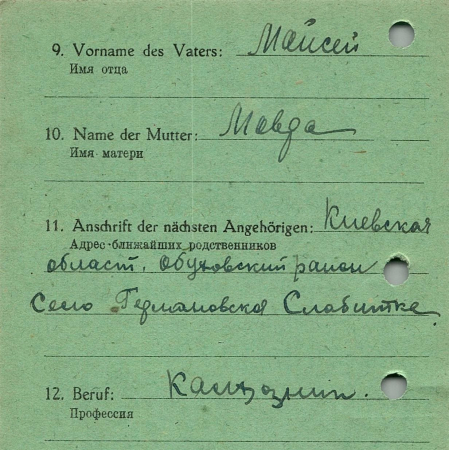 9. Vorname des Vaters: Мойсей
Имя отца
10. Name der Mutter: Мовда
Имя матери
11. Anschrift der nächsten Angehörigen: Киевская
Адрес ближайших родственников
област. Обуховский район
Село Германовская Слабитке
12. Beruf: Калхозник.
Профессия